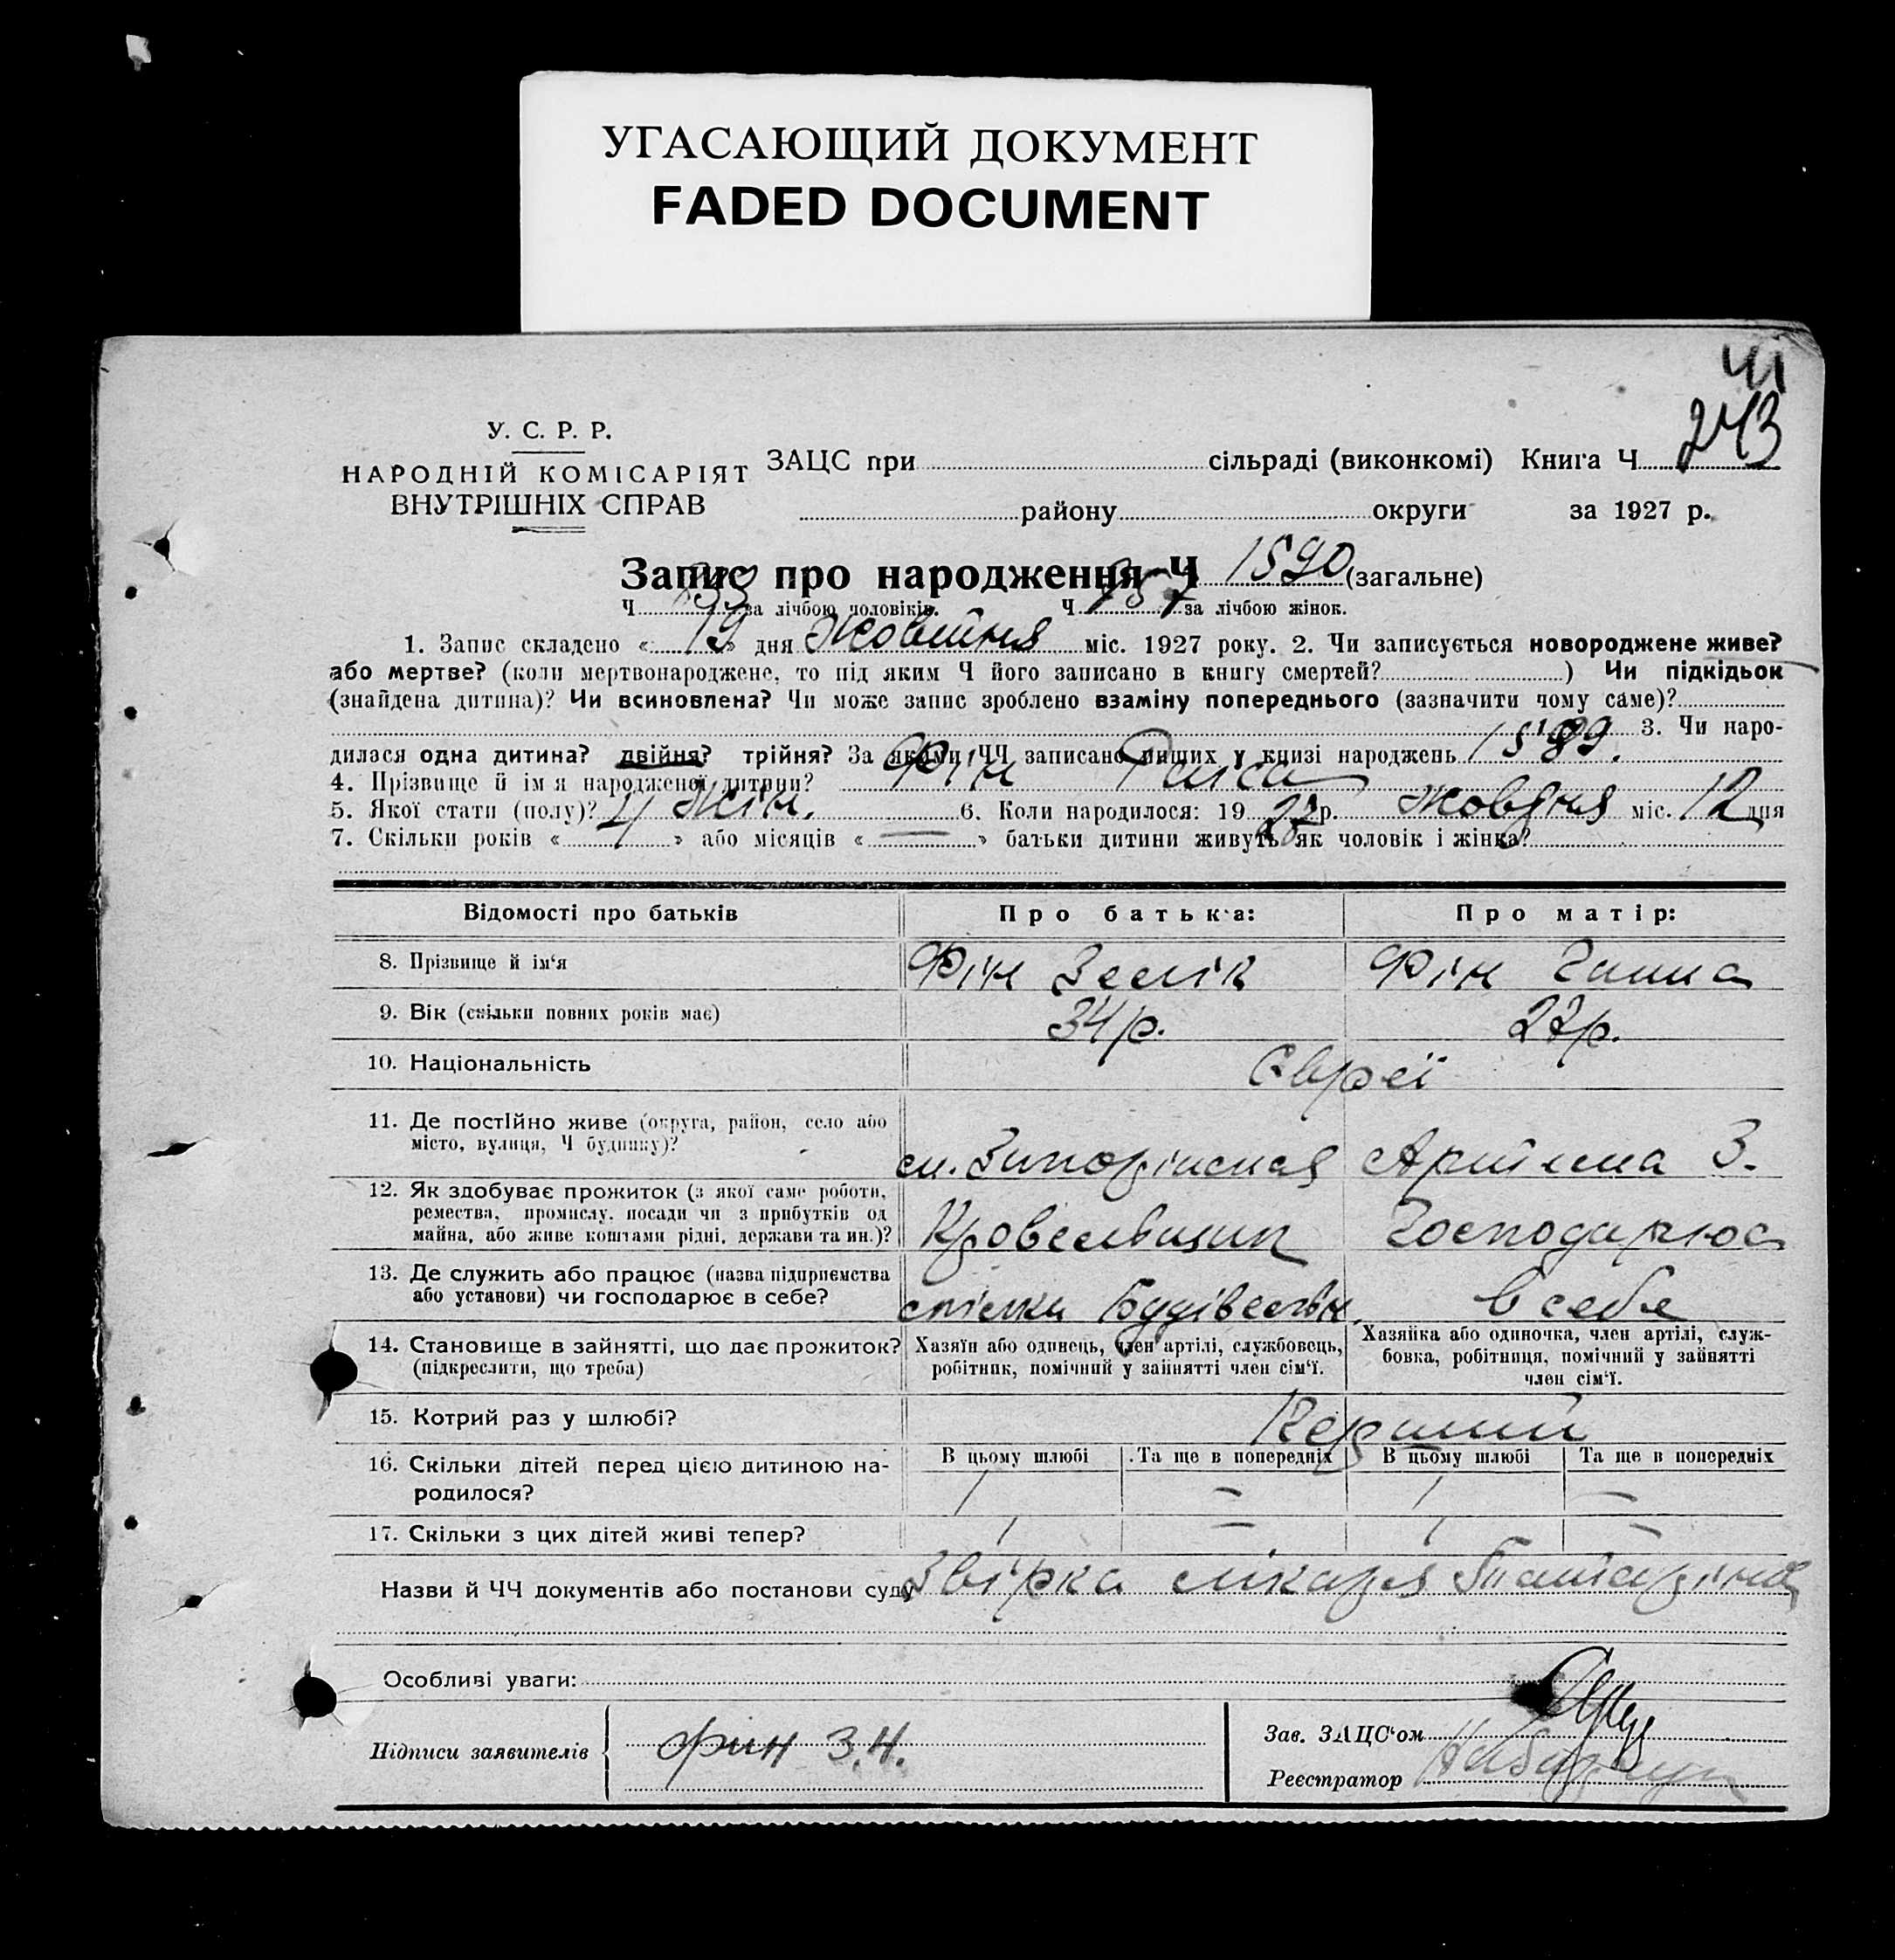 УГАСАЮЩИЙ ДОКУМЕНТ
FADED DOCUMENT
41
243
У. С. Р. Р.
НАРОДНІЙ КОМІСАРІЯТ
ВНУТРІШНІХ СПРАВ
ЗАЦС при сільраді (виконкомі) Книга Ч
району округи за 1927 р.
Запис про народження Ч 1590 (загальне)
Ч за лічбою чоловіків. Ч 957 за лічбою жінок.
1. Запис складено « 19 » дня Жовтня міс. 1927 року. 2. Чи записується новороджене живе?
або мертве? (коли мертвонароджене, то під яким Ч його записано в книгу смертей? ) Чи підкідьок
(знайдена дитина)? Чи всиновлена? Чи може запис зроблено взаміну попереднього (зазначити чому саме)?
3. Чи наро-
дилася одна дитина? двійня? трійня? За якими ЧЧ записано инших у книзі народжень 1589.
4. Прізвище й ім я народженої дитини? Фін Раіса
5. Якої стати (полу)? Жін. 6. Коли народилося: 19 27 р. Жовтня міс. 12 дня
7. Скільки років « 4 » або місяців « — » батьки дитини живуть як чоловік і жінка?
Відомості про батьків Про батька: Про матір:
8. Прізвище й ім‘я Фін Зелік Фін Ганна
9. Вік (скільки повних років має) 34 р. 27 р.
10. Національність Євреї
11. Де постійно живе (округа, район, село або
місто, вулиця, Ч будинку)?
Артема 3.
12. Як здобуває прожиток (з якої саме роботи,
ремества, промислу, посади чи з прибутків од
майна, або живе коштами рідні, держави та ин.)?
Кровельщик Господарює
13. Де служить або працює (назва підприемства
або установи) чи господарює в себе?
спілка Будівельн. в себе
14. Становище в зайнятті, що дає прожиток?
(підкреслити, що треба)
Хазяїн або одинець, член артілі, службовець,
робітник, помічний у зайнятті член сім‘ї.
Хазяйка або одиночка, член артілі, служ-
бовка, робітниця, помічний у зайнятті
член сім‘ї.
15. Котрий раз у шлюбі? Перший
В цьому шлюбі Та ще в попередніх В цьому шлюбі Та ще в попередніх
16. Скільки дітей перед цією дитиною на-
родилося?
1 — 1 —
17. Скільки з цих дітей живі тепер? 1 — 1 —
Назви й ЧЧ документів або постанови суду Звірка лікаря
Особливі уваги:
Підписи заявителів Фин З.Н.
Зав. ЗАЦС‘ом
Реєстратор